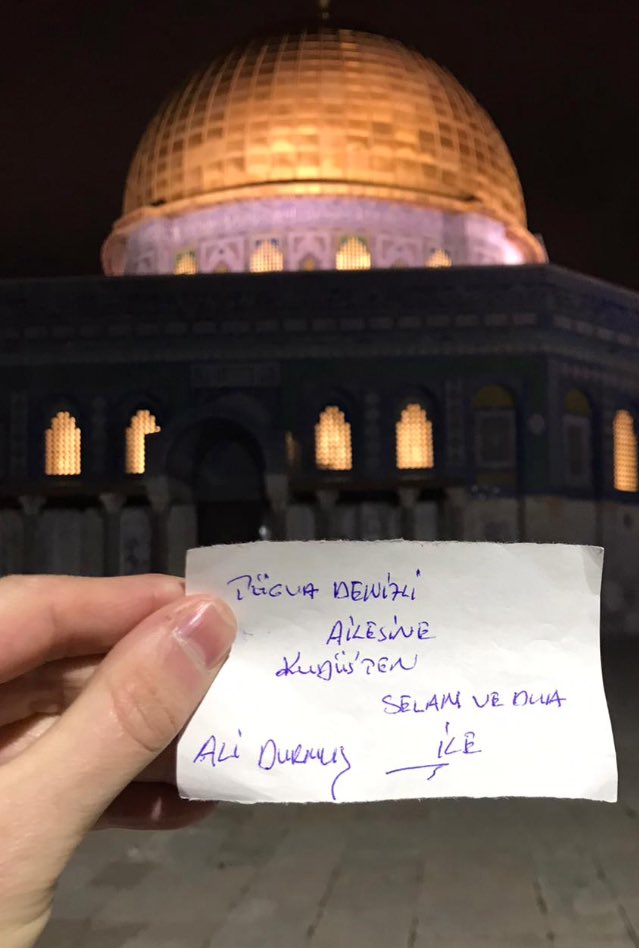 TÜGVA DENİZLİ
AİLESİNE
KUDÜS'TEN
SELAM VE DUA
İLE
ALİ DURMUŞ